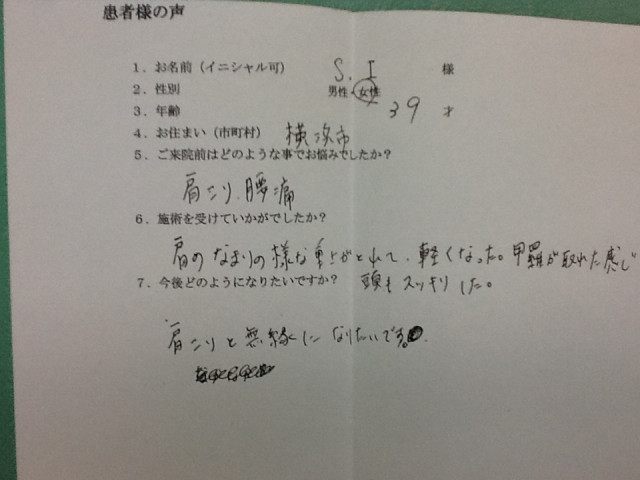 患者様の声
1．お名前（イニシャル可） S. I 様
2．性別 男性・女性
3．年齢 39 才
4．お住まい（市町村） 横浜市
5．ご来院前はどのような事でお悩みでしたか？
肩こり、腰痛
6．施術を受けていかがでしたか？
肩のなまりの様な重さがとれて、軽くなった。甲羅が取れた感じ
7．今後どのようになりたいですか？ 頭もスッキリした。
肩こりと無縁になりたいです。